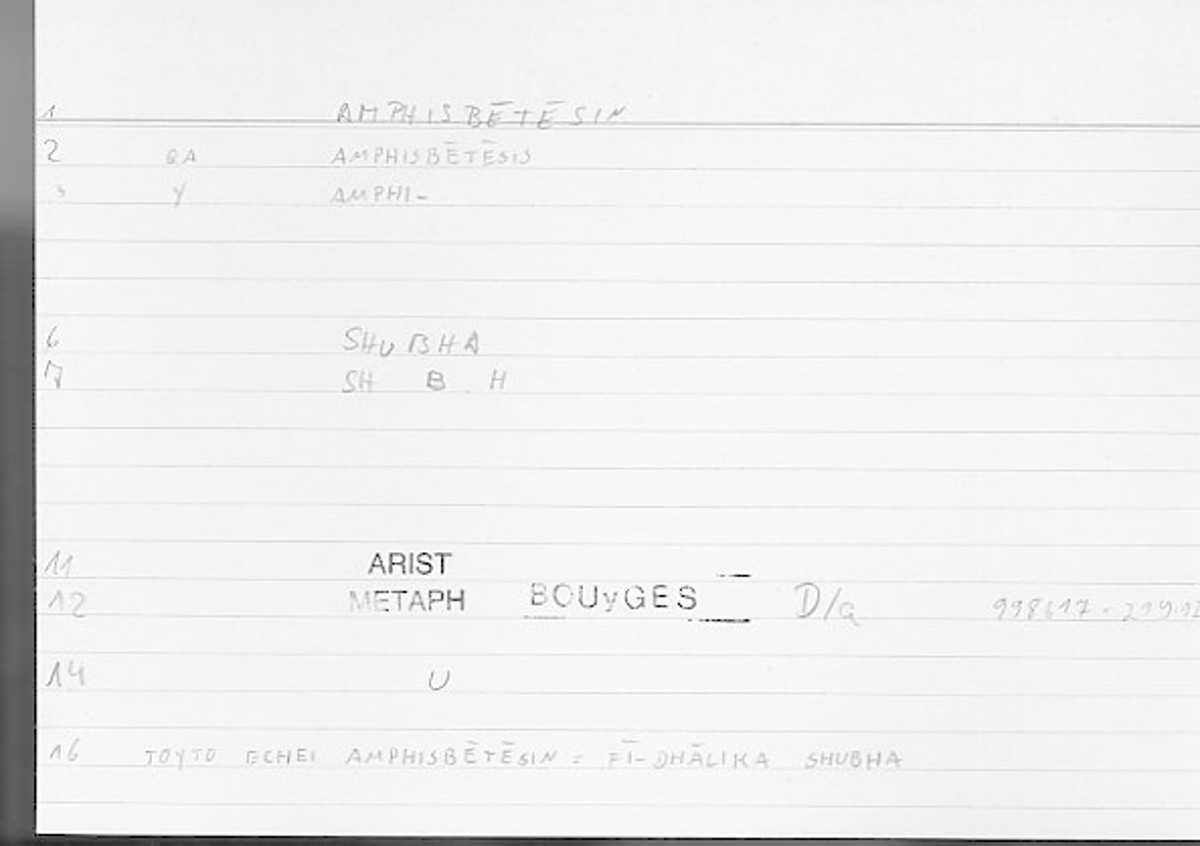 1 AMPHISBĒTĒSIN
2 QA AMPHISBĒTĒSIS
3 Y AMPHI-
6 SHUBHA
7 SH B H
11 ARIST
12 METAPH BOUYGES D/a
14 U
16 TOYTO ECHEI AMPHISBĒTĒSIN = FĪ-DHĀLIKA SHUBHA